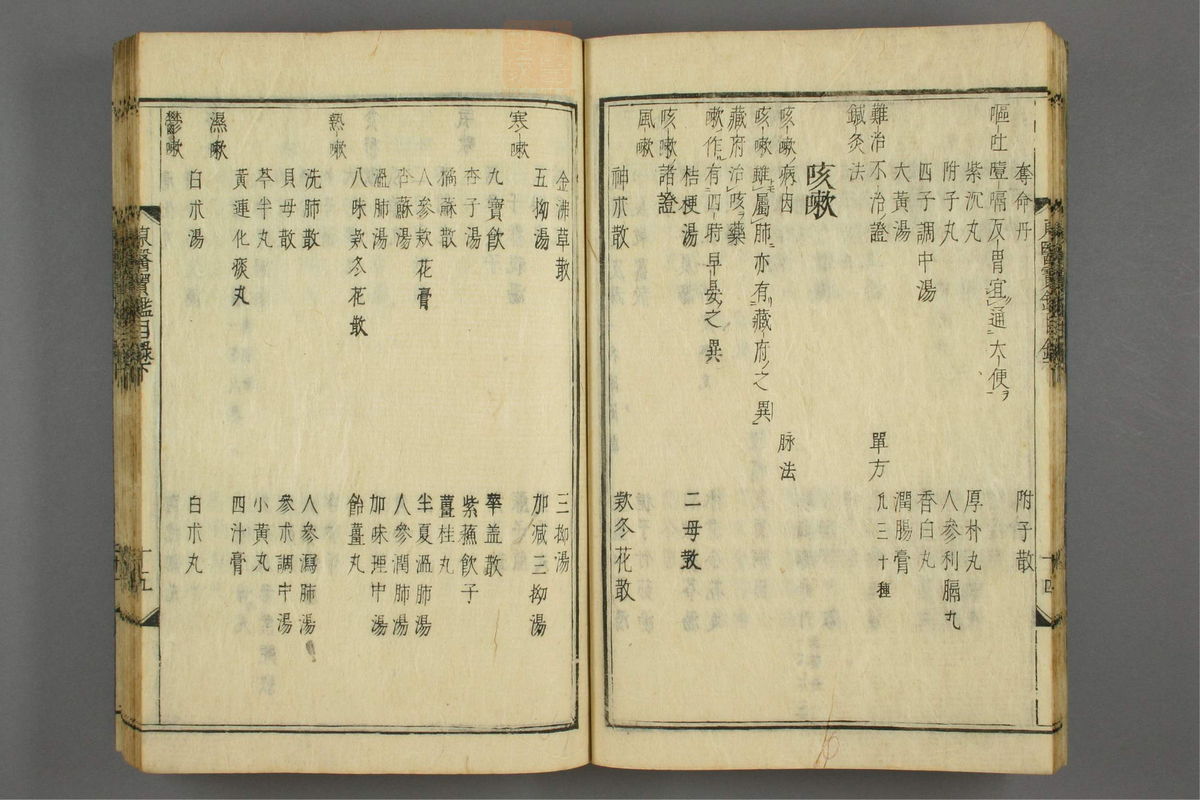 奪命丹 附子散
嘔吐噎膈反胃宜通大便ヲ
紫沉丸 厚朴丸
附子丸 人參利膈丸
四子調中湯 香白丸
大黃湯 潤腸膏
難治不治證 單方
鍼灸法 凡三十種
咳嗽
咳嗽病因 脉法
咳嗽雖屬肺亦有藏府之異
藏府治咳藥
嗽作有四時早晏之異
桔梗湯 二母散
咳嗽諸證
風嗽
神朮散 款冬花散
東醫寶鑑目錄下 十四
金沸草散 三拗湯
五拗湯 加減三拗湯
寒嗽
九寶飮 華盖散
杏子湯 紫蘓飮子
橘蘇散 薑桂丸
八參款花膏 半夏溫肺湯
杏蘇湯 人參潤肺湯
溫肺湯 加味理中湯
八味款冬花散 飴薑丸
熱嗽
洗肺散 人參瀉肺湯
貝母散 參朮調中湯
芩半丸 小黃丸
黃連化痰丸 四汁膏
濕嗽
白朮湯 白朮丸
鬱嗽
東醫寶鑑目錄下 十五